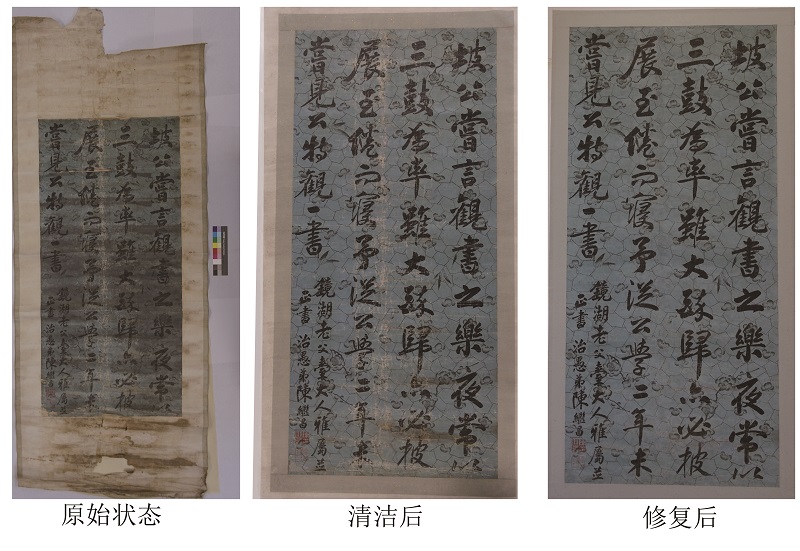 坡公嘗言觀書之樂夜常以
三鼓為率雖大醉歸亦必披
展至倦而寢予從公學二年未
嘗見公特觀一書
鏡湖老父臺大人雅屬並
正書 治愚弟陳繼昌
原始状态
坡公嘗言觀書之樂夜常以
三鼓為率雖大醉歸亦必披
展至倦而寢予從公學二年未
嘗見公特觀一書
鏡湖老父臺大人雅屬並
正書 治愚弟陳繼昌
清洁后
坡公嘗言觀書之樂夜常以
三鼓為率雖大醉歸亦必披
展至倦而寢予從公學二年未
嘗見公特觀一書
鏡湖老父臺大人雅屬並
正書 治愚弟陳繼昌
修复后